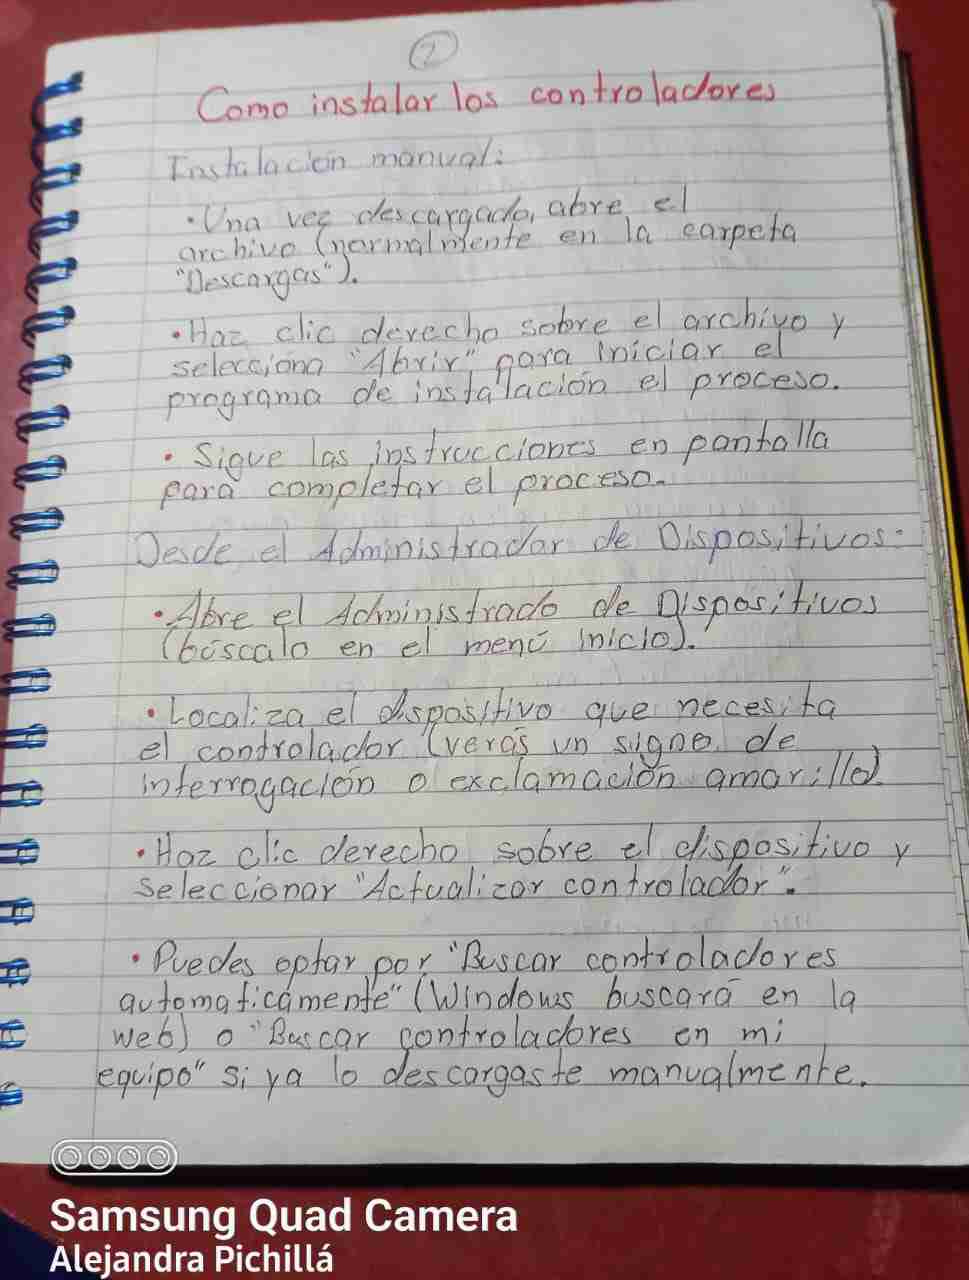 2
Como instalar los controladores
Instalación manual:
• Una vez descargado, abre el
archivo (normalmente en la carpeta
"Descargas").
• Haz clic derecho sobre el archivo y
selecciona "Abrir" para iniciar el
programa de instalación el proceso.
• Sigue las instrucciones en pantalla
para completar el proceso.
Desde el Administrador de Dispositivos:
• Abre el Administrado de Dispositivos
(búscalo en el menú inicio).
• Localiza el dispositivo que necesita
el controlador (verás un signo de
interrogación o exclamación amarillo)
• Haz clic derecho sobre el dispositivo y
seleccionar "Actualizar controlador".
• Puedes optar por "Buscar controladores
automaticámente" (Windows buscará en la
web) o "Buscar controladores en mi
equipo" si ya lo descargaste manualmente.
Samsung Quad Camera
Alejandra Pichillá